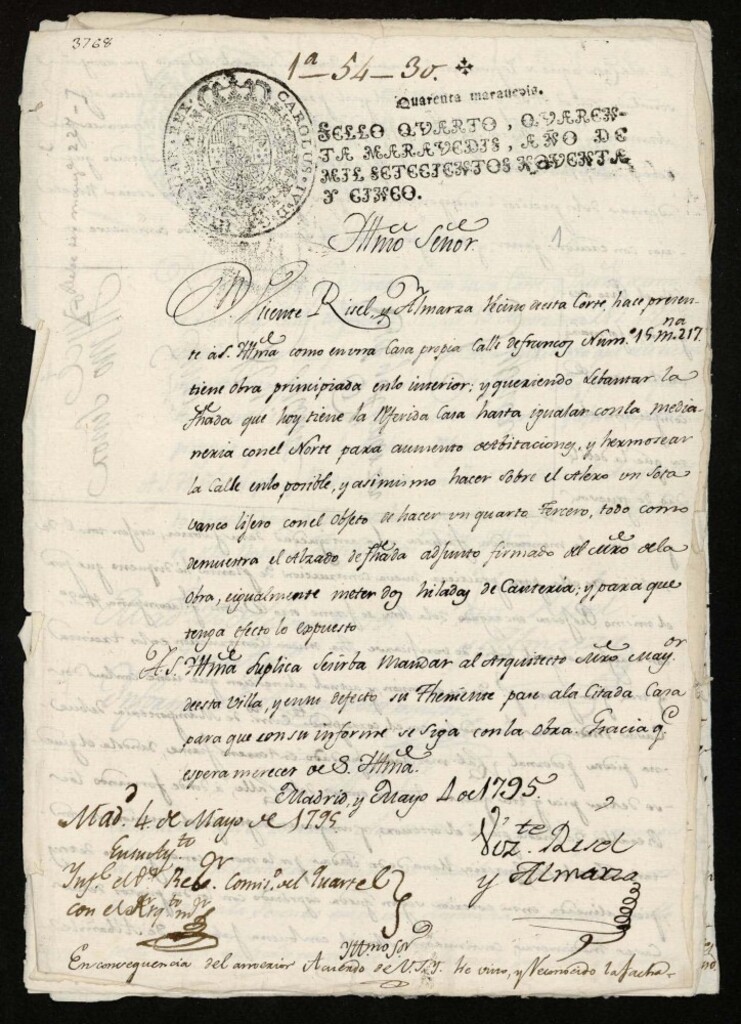 3768
1ª - 54 - 30.
Quarenta maravedis.
SELLO QVARTO, QVAREN-
TA MARAVEDIS, AÑO DE
MIL SETECIENTOS NOVENTA
Y CINCO.
CAROLUS IV D.
Yllmo Señor.
1
Dn. Vicente Risel, y Almarza Vecino de esta Corte, hace presen-
te à S. Yllma como en una Casa propia Calle de francos Num.º 15 mna. 217.
tiene obra principiada enlo interior; y queriendo Lebantar la
fhada que hoy tiene la Referida Casa hasta igualar con la media-
neria con el Norte para aumento de Abitaciones, y hermosear
la Calle enlo posible, y asimismo hacer sobre el Alero un Sota
vanco lijero con el Objeto de hacer un quarto tercero, todo como
demuestra el Alzado de fhada adjunto firmado del Mro dela
Obra, e igualmente meter dos hiladas de Canteria; y para que
tenga efecto lo expuesto
A S. Yllma Suplica Se sirba Mandar al Arquitecto Mro Mayor
de esta Villa, y en su defecto su Theniente pase ala Citada Casa
para que con su informe se Siga con la Obra. Gracia q.e
espera merecer de S. Yllma.
Madrid, y Mayo 4 de 1795.
Mad.d 4 de Mayo de 1795
Vizte Risel
y Almarza
En su Ayto
Ynf.e el Sr Regr. Comis.o del Quartel
con el Arqto mr
Yttmo Sor
En consequencia del anterior Acuerdo de V.S.Y. he visto, y Reconocido la facha-